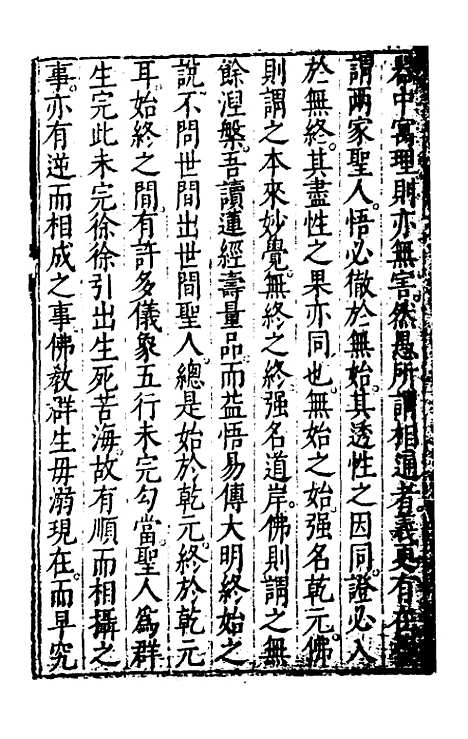 中寓理則亦無害然愚所謂相通者義更有在
謂兩家聖人悟必徹於無始其透性之因同證必入
於無終其盡性之果亦同也無始之始强名乾元佛
則謂之本來妙覺無終之終强名道岸佛則謂之無
餘涅槃吾讀蓮經壽量品而益悟易傳大明終始之
說不問世間出世間聖人總是始於乾元終於乾元
耳始終之間有許多儀象五行未完勾當聖人爲群
生完此未完徐徐引出生死苦海故有順而相攝之
事亦有逆而相成之事佛敎群生毋溺現在而早究